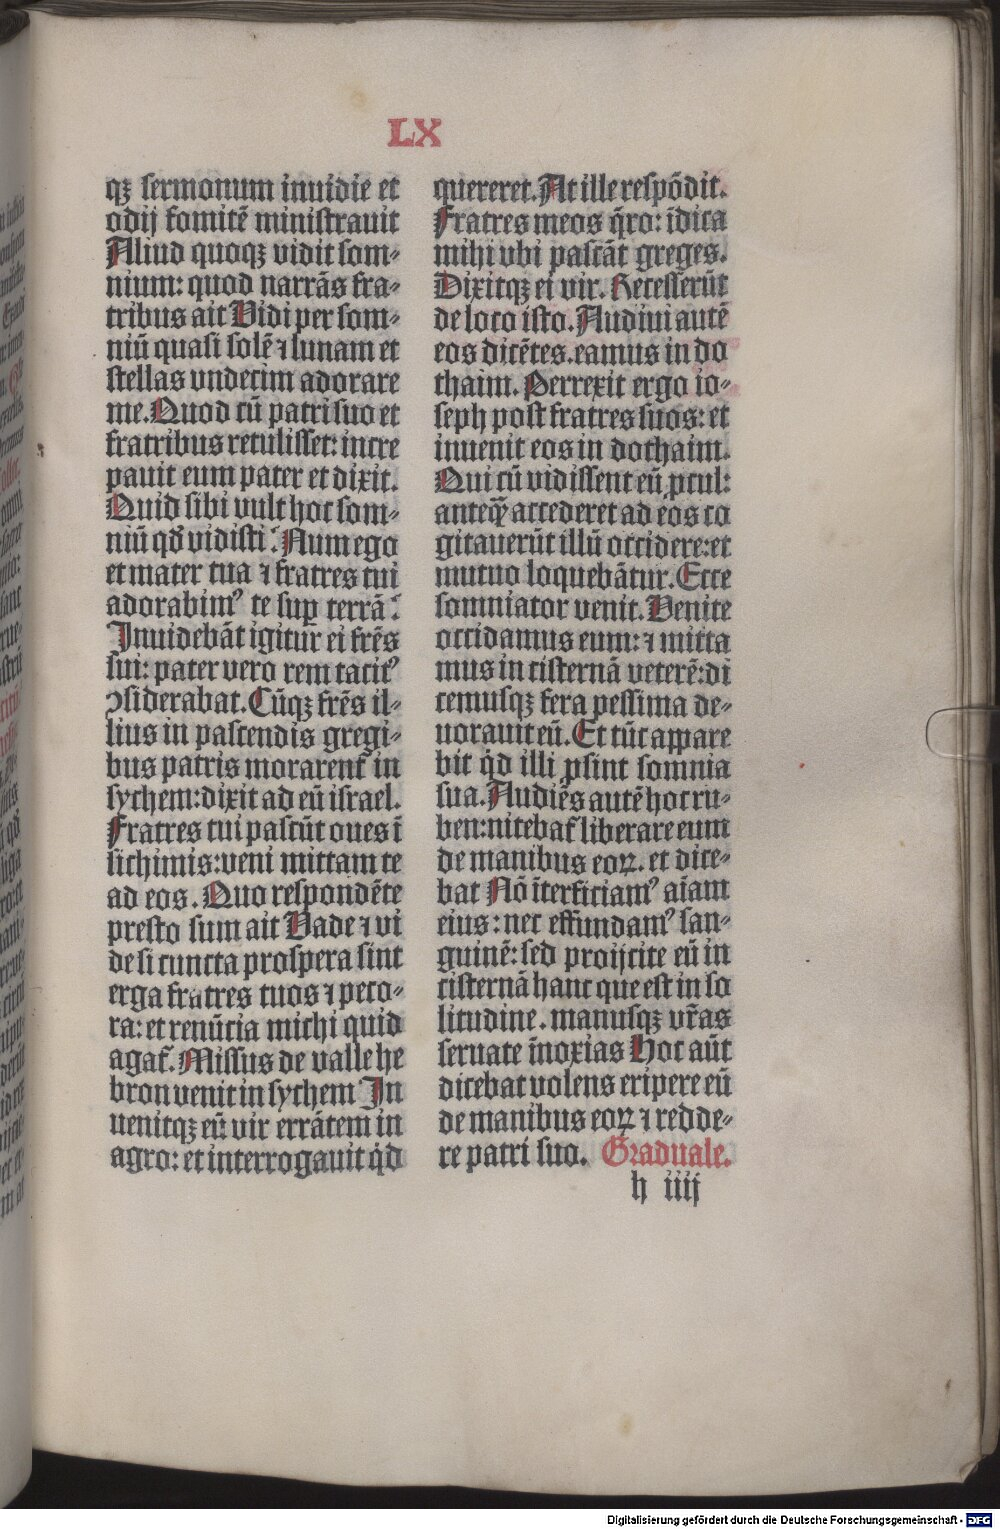 LX
qꝫ sermonum inuidie et
odij fomitē ministrauit
Aliud quoqꝫ vidit som⸗
nium: quod narrās fra⸗
tribus ait Vidi per som⸗
niū quasi solē ⁊ lunam et
stellas vndecim adorare
me. Quod cū patri suo et
fratribus retulisset: incre
pauit eum pater et dixit.
Quid sibi vult hoc som⸗
niū qď vidisti? Num ego
et mater tua ⁊ fratres tui
adorabimꝰ te suꝑ terrā?
Inuidebāt igitur ei frēs
sui: pater vero rem tacitꝰ
ꝯsiderabat. Cūqꝫ frēs il⸗
lius in pascendis gregi⸗
bus patris morarent᷑ in
sychem: dixit ad eū israel.
Fratres tui pascūt oues ī
sichimis: veni mittam te
ad eos. Quo respondēte
presto sum ait Vade ⁊ vi
de si cuncta prospera sint
erga fratres tuos ⁊ peco⸗
ra: et renūcia michi quid
agat᷑. Missus de valle he
bron venit in sychem In
uenitqꝫ eū vir errātem in
agro: et interrogauit qď
quereret. At ille respōdit.
Fratres meos q̄ro: īdica
mihi vbi pascāt greges.
Dixitqꝫ ei vir. Recesserūt
de loco isto. Audiui autē
eos dicētes. eamus in do
thaim. Perrexit ergo io⸗
seph post fratres suos: et
inuenit eos in dothaim.
Qui cū vidissent eū ꝓcul:
anteq̄ꝫ accederet ad eos co
gitauerūt illū occidere: et
mutuo loquebātur. Ecce
somniator venit. Venite
occidamus eum: ⁊ mitta
mus in cisternā veterē: di
cemusqꝫ fera pessima de⸗
uorauit eū. Et tūc appare
bit qď illi ꝓsint somnia
sua. Audiēs autē hoc ru⸗
ben: nitebat᷑ liberare eum
de manibus eoꝝ. et dice⸗
bat Nō īterficiamꝰ aīam
eius: nec effundamꝰ san⸗
guinē: sed proijcite eū in
cisternā hanc que est in so
litudine. manusqꝫ vr̄as
seruate īnoxias Hoc aūt
dicebat volens eripere eū
de manibus eoꝝ ⁊ redde⸗
re patri suo. Graduale.
h iiij
Digitalisierung gefördert durch die Deutsche Forschungsgemeinschaft - DFG